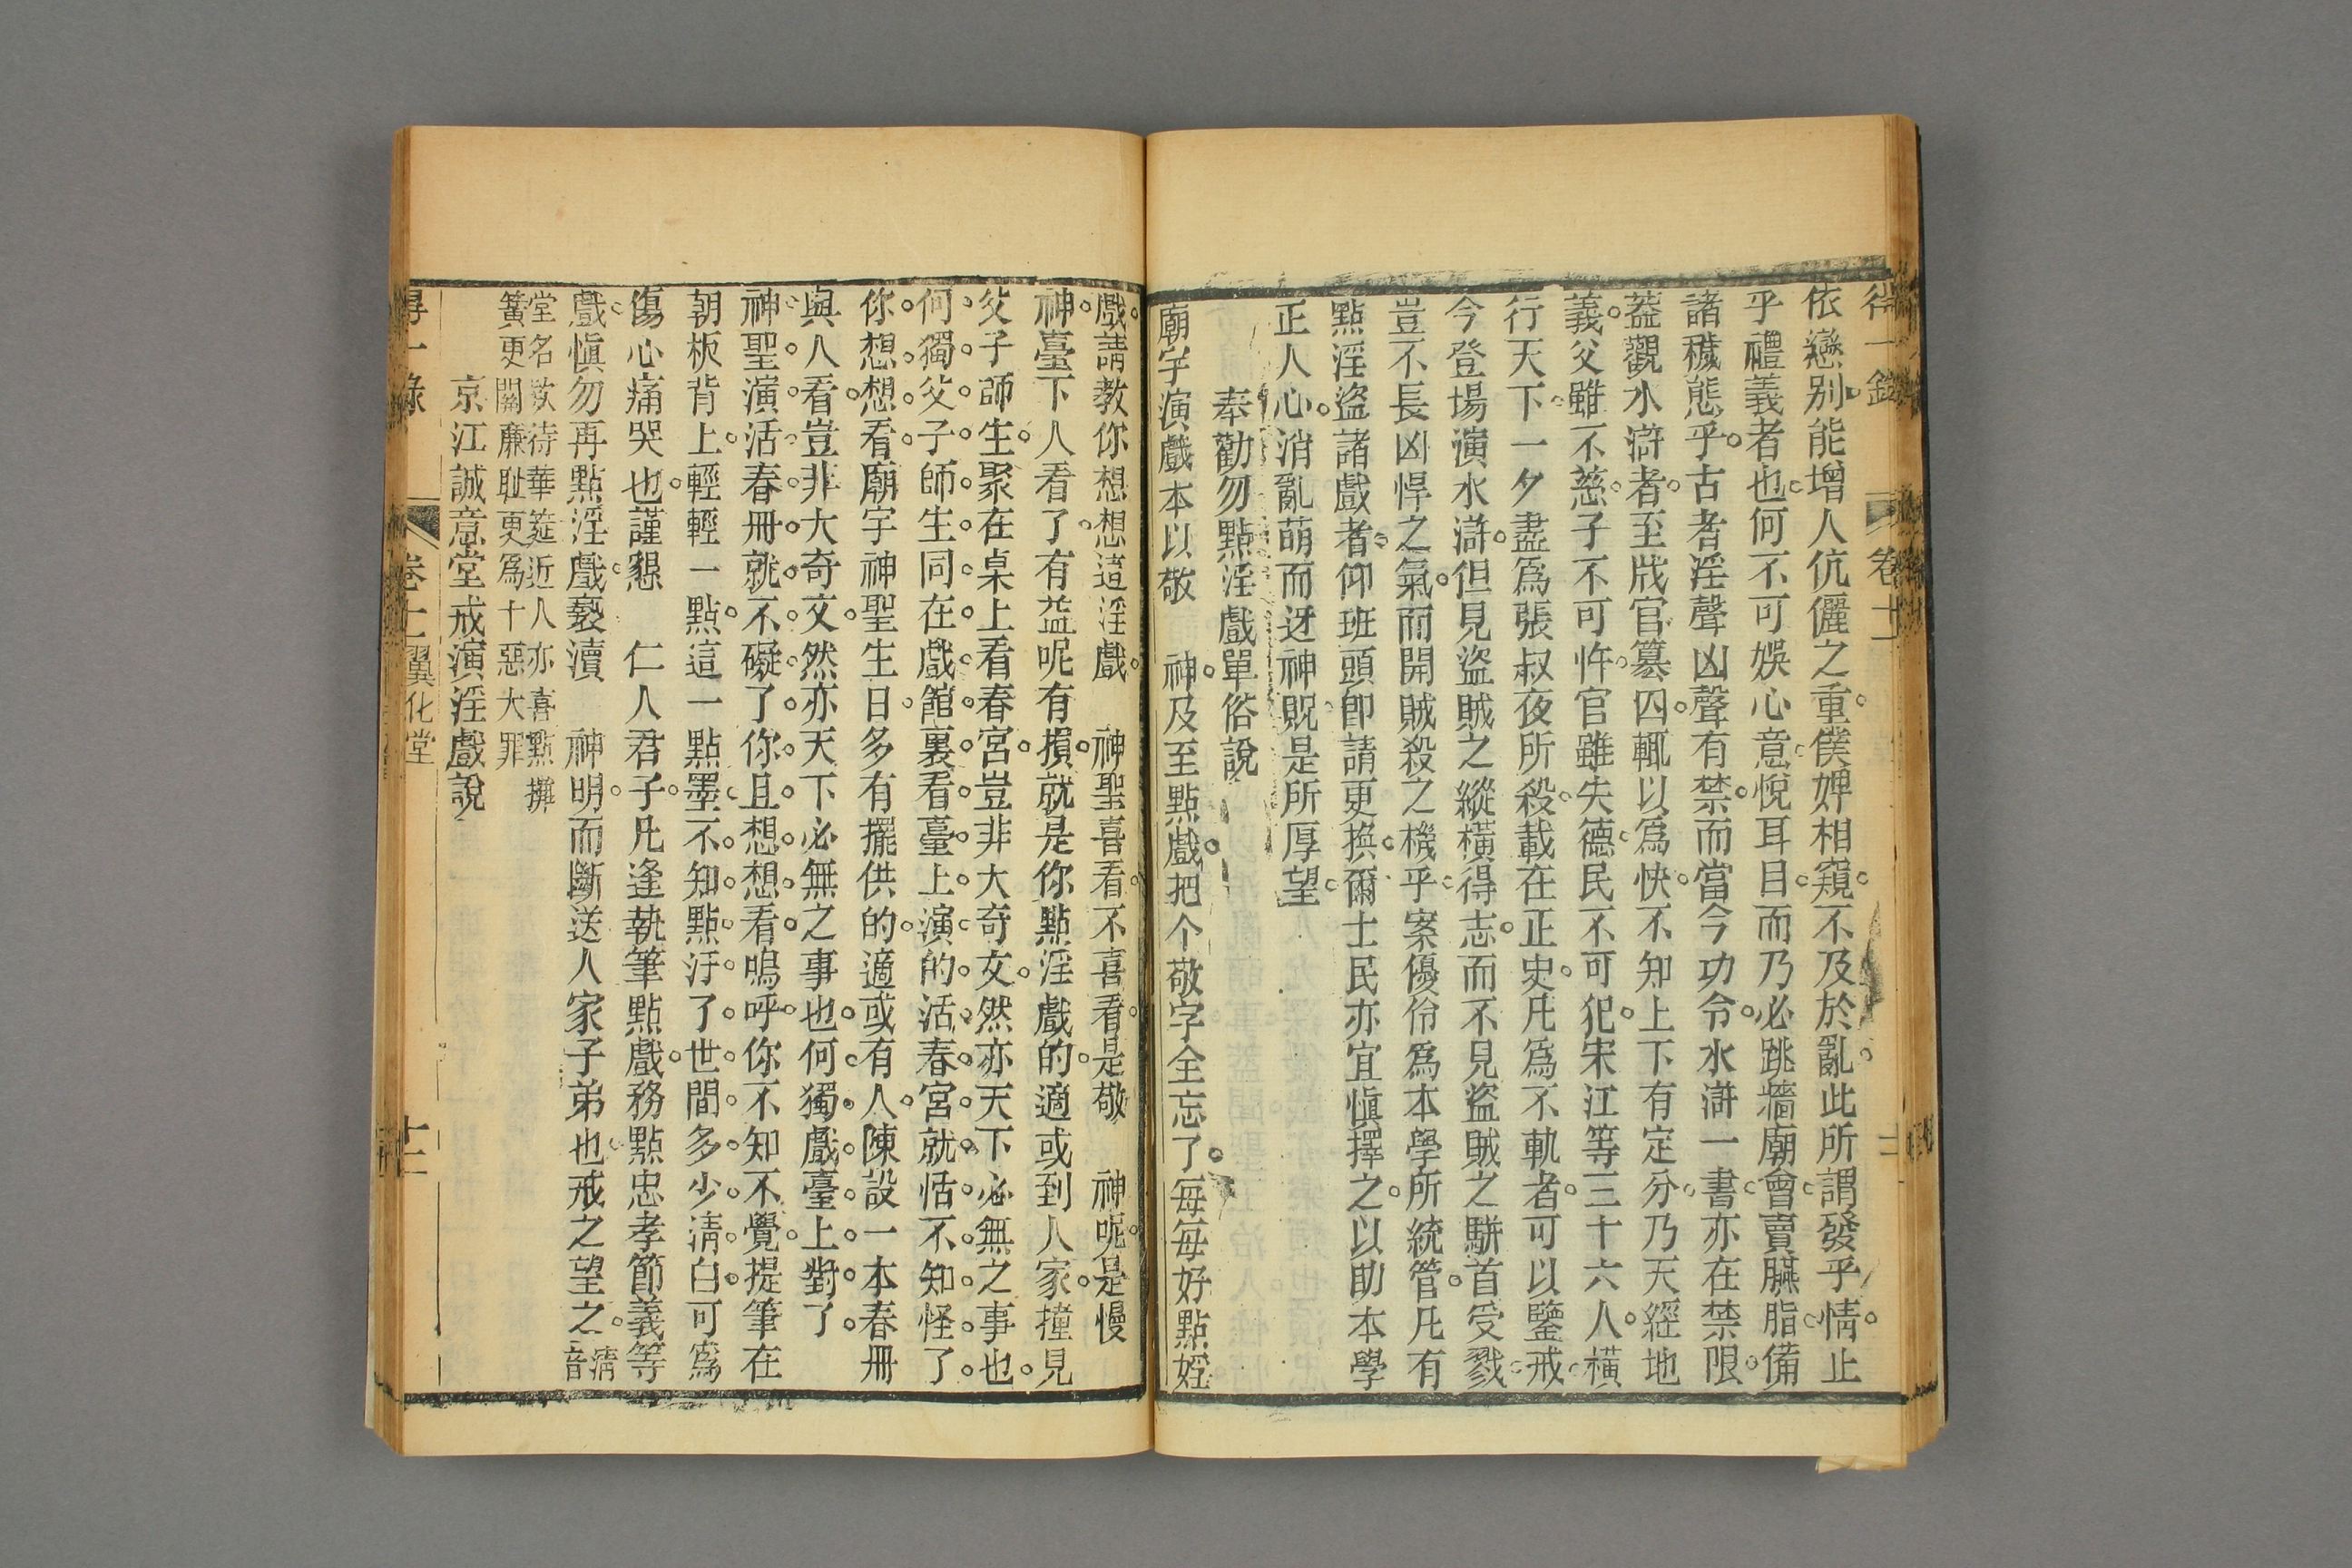 得一錄 卷十一
依戀別能增人伉儷之重僕婢相窺不及於亂此所謂發乎情止
乎禮義者也何不可娛心意悅耳目而乃必跳牆廟會賣臙脂備
諸穢態乎古者淫聲凶聲有禁而當今功令水滸一書亦在禁限
葢觀水滸者至戕官篡囚輒以爲快不知上下有定分乃天經地
義父雖不慈子不可忤官雖失德民不可犯宋江等三十六人橫
行天下一夕盡爲張叔夜所殺載在正史凡爲不軌者可以鑒戒
今登場演水滸但見盜賊之縱橫得志而不見盜賊之駢首受戮
豈不長凶悍之氣而開賊殺之機乎案優伶爲本學所統管凡有
點淫盜諸戲者仰班頭卽請更換爾士民亦宜愼擇之以助本學
正人心消亂萌而迓神貺是所厚望
奉勸勿點淫戲單俗說
廟宇演戲本以敬　神及至點戲把个敬字全忘了每每好點婬
戲請教你想想這淫戲　神聖喜看不喜看是敬　神呢是慢
神臺下人看了有益呢有損就是你點淫戲的適或到人家撞見
父子師生聚在桌上看春宮豈非大奇文然亦天下必無之事也
何獨父子師生同在戲館裏看臺上演的活春宮就恬不知怪了
你想想看廟宇神聖生日多有擺供的適或有人陳設一本春冊
與人看豈非大奇文然亦天下必無之事也何獨戲臺上對了
神聖演活春冊就不礙了你且想想看嗚呼你不知不覺提筆在
朝板背上輕輕一點這一點墨不知點汙了世間多少淸白可爲
傷心痛哭也謹懇　仁人君子凡逢執筆點戲務點忠孝節義等
戲愼勿再點淫戲褻瀆　神明而斷送人家子弟也戒之望之淸音
堂名欵待華筵近人亦喜點攤
簧更關廉耻更爲十惡大罪
京江誠意堂戒演淫戲說
得一錄 卷十一 翼化堂 十二